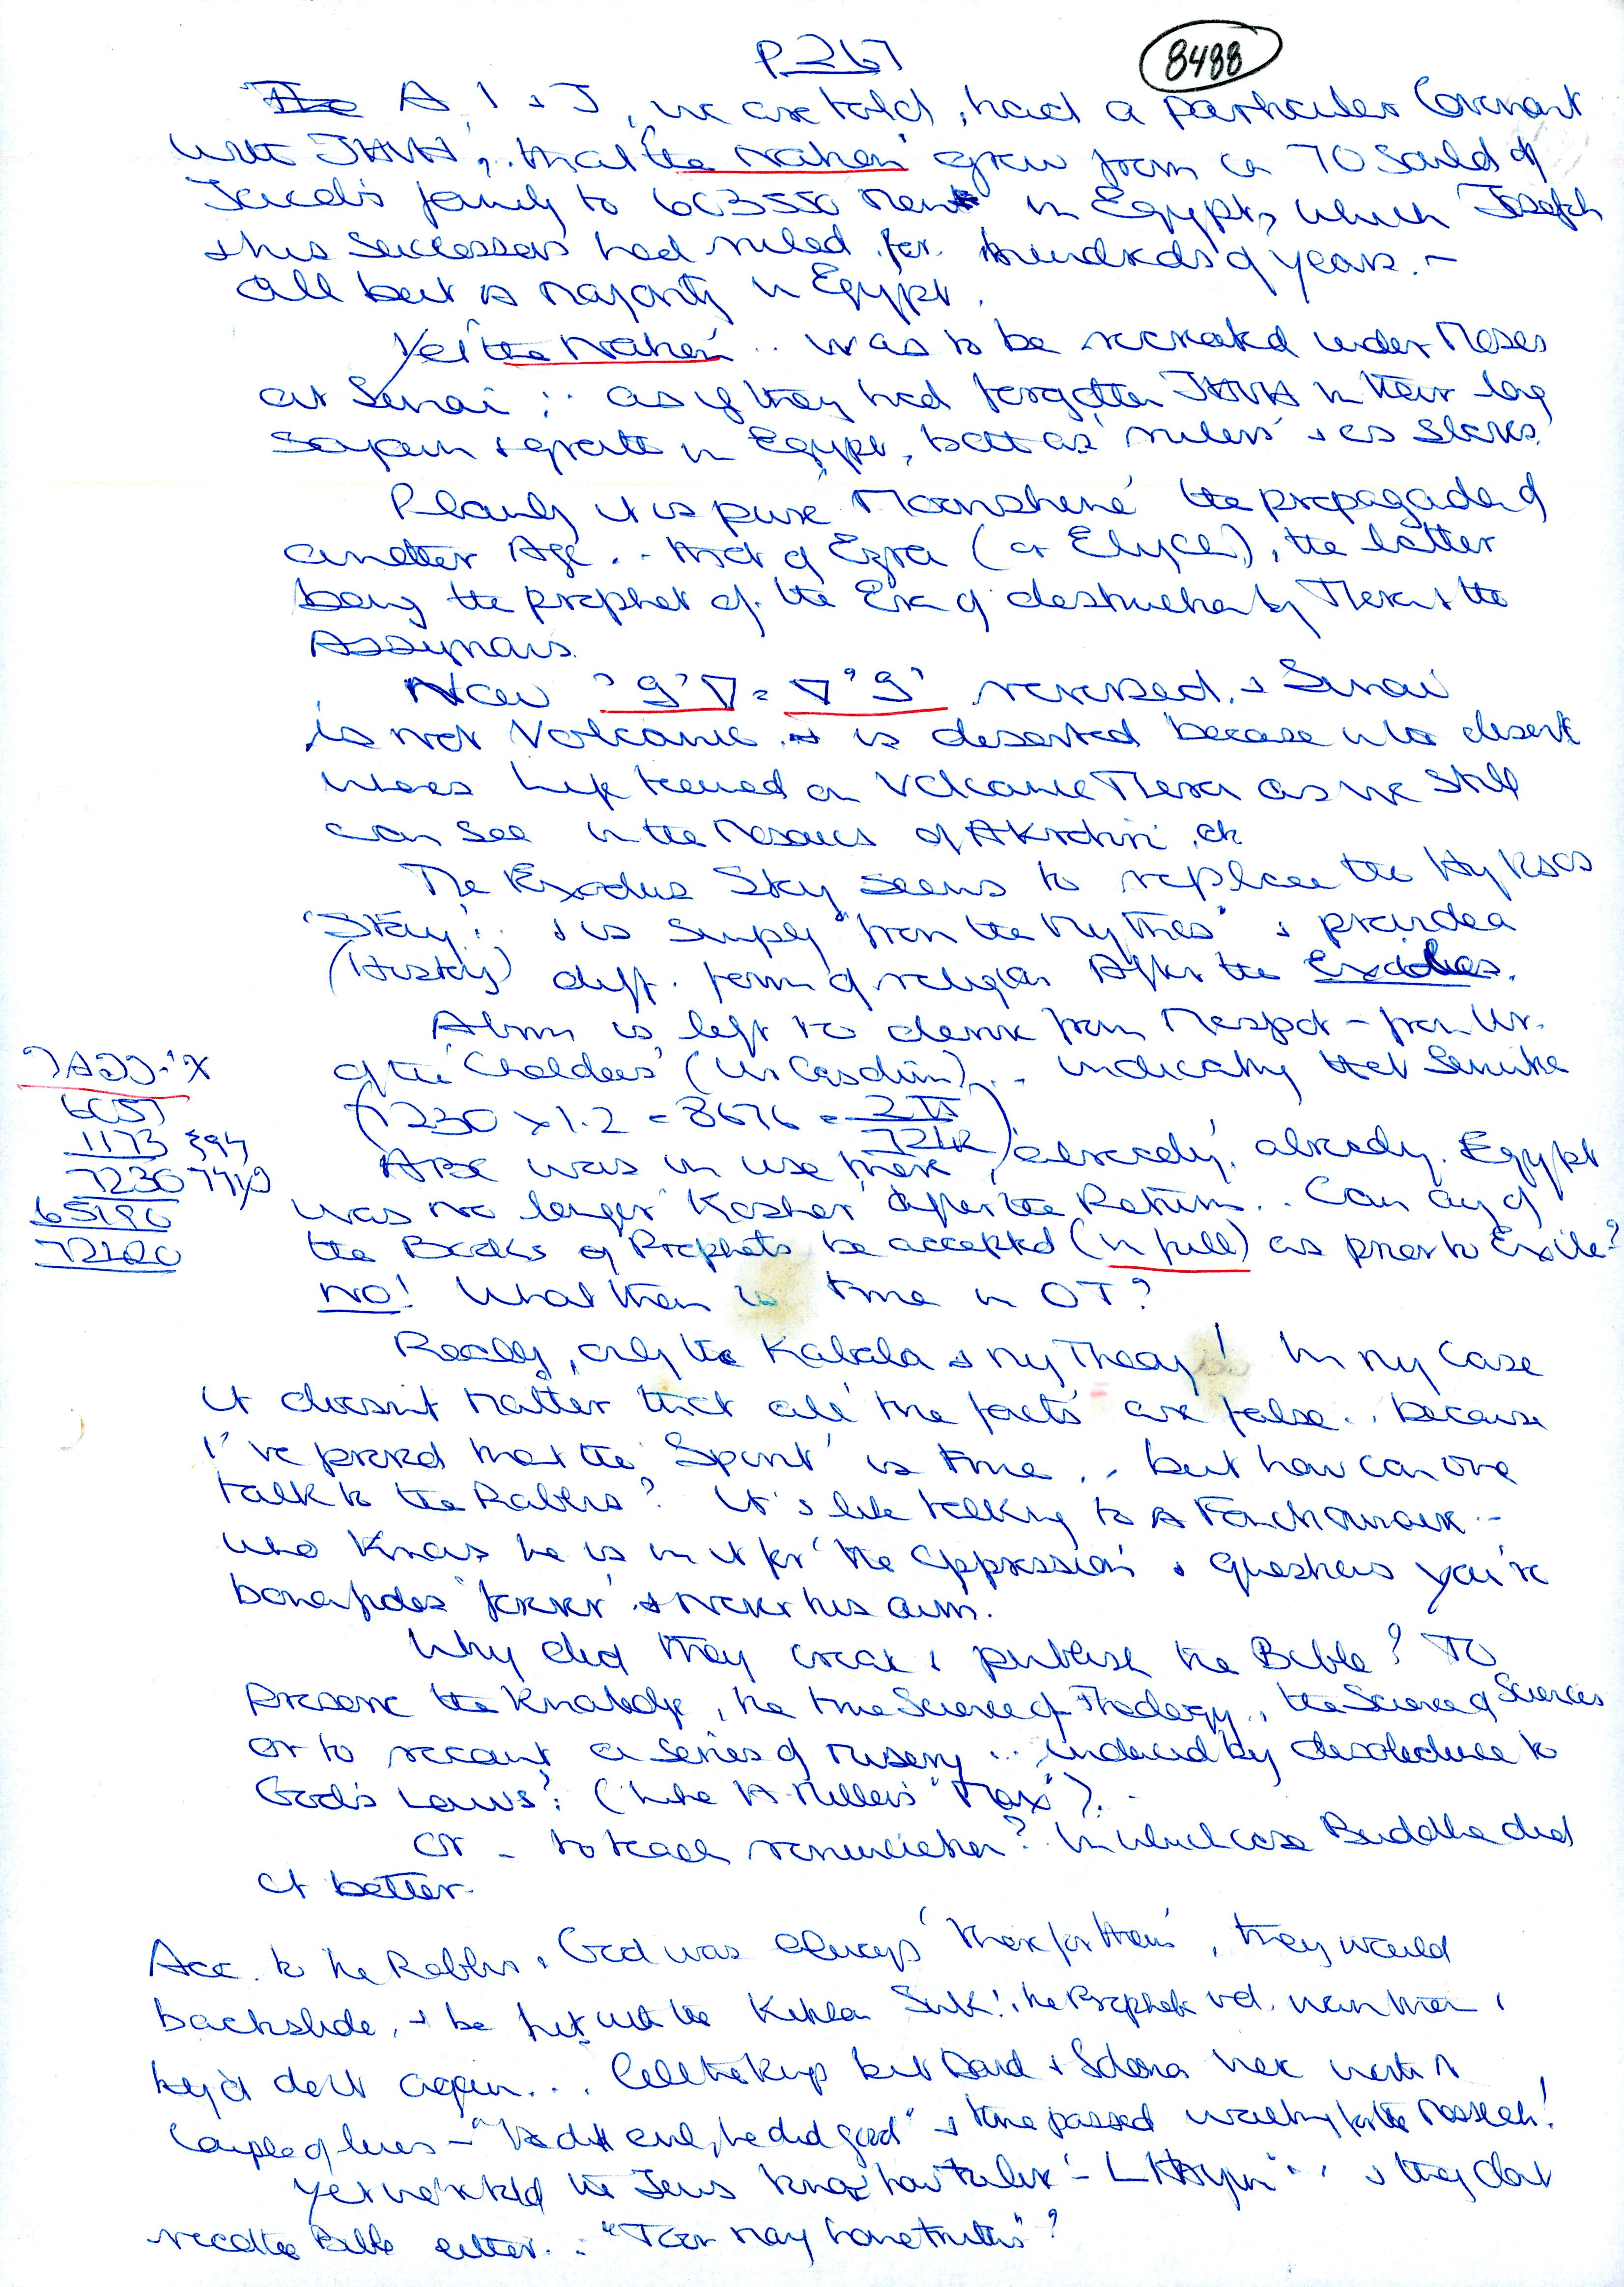 P 267
8488
The A, I & J, we are told, had a particular Covenant
with JHVH, .. that 'the Nation' grew from a 70 Souled of
Jacob's family to 603550 Men in Egypt, which Joseph
& his Successors had ruled for hundreds of years. -
all but a majority in Egypt.
Yet 'the Nation' .. was to be recreated under Moses
at Sinai ; .. as if they had forgotten JHVH in their long
Sojourn & growth in Egypt, both as 'rulers' & as Slaves.
Plainly it is pure 'Moonshine' the propaganda of
another Age .. that of Ezra (or Elijah), the latter
being the prophet of the Era of destruction by Thera & the
Assyrians.
Now = reversed, & Sinai
is not Volcanic, & is deserted because it is desert
whereas Life teemed on Volcanic Thera as we Still
can See in the Mosaics of Akrotiri, etc
The Exodus Story seems to replace the Hyksos
'Stay' .. & is Simply "from the Mythos" & provided a
(History) diff. form of religion After the Exodus.
Abram is left to derive from Mesopot - from Ur.
of the 'Chaldees' (Ur Casdim) .. indicating that Semitic
(7230 x 1.2 = 8676 =
ABC was in use there 'already', already. Egypt
6057
1173
7230
65190
72120
was no longer 'Kosher' after the Return .. Can any of
the Books of Prophets be accepted (in full) as prior to Exile?
NO! What then is true in OT?
Really, only the Kabala & my Theory! In my Case
it doesn't matter that all 'the facts' are false .. because
I've proved that the 'Spirit' is true .. but how can one
talk to the Rabbis? It's like talking to a
who knows he is in it for 'the oppression' & questions you're
bonafides 'forever' & never his own.
Why did they create & publish the Bible? To
preserve the Knowledge, the true Science of Theology, the Science of Sciences
or to recount a Series of misery .. induced by disobedience to
God's Laws? (Like A. Miller's "
or - to teach renunciation? In which case Buddha did
it better.
Acc. to the Rabbis, God was always 'there for them', they would
backslide, & be hit with the Kitchen Sink!, the Prophets wd. warn them,
they'd do it again ... All the Kings but David & Solomon were worth a
Couple of lines - "he did evil, he did good" & time passed waiting for the Mossiah!
Yet we're told the Jews know how to live - L'Hayim .. & they don't
read the Bible either .. "Too many home truths"?